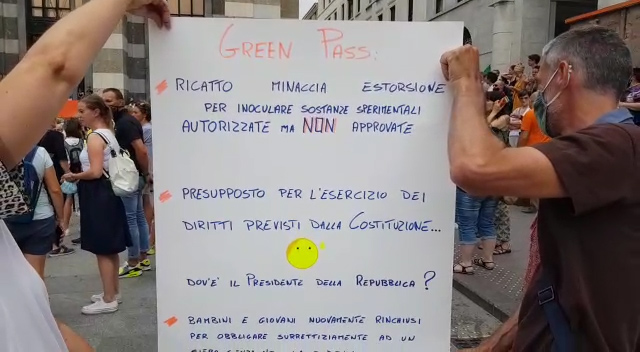 GREEN PASS:
RICATTO MINACCIA ESTORSIONE
PER INOCULARE SOSTANZE SPERIMENTALI
AUTORIZZATE MA NON APPROVATE
PRESUPPOSTO PER L'ESERCIZIO DEI
DIRITTI PREVISTI DALLA COSTITUZIONE...
DOV'E' IL PRESIDENTE DELLA REPUBBLICA?
BAMBINI E GIOVANI NUOVAMENTE RINCHIUSI
PER OBBLIGARE SURRETTIZIAMENTE AD UN